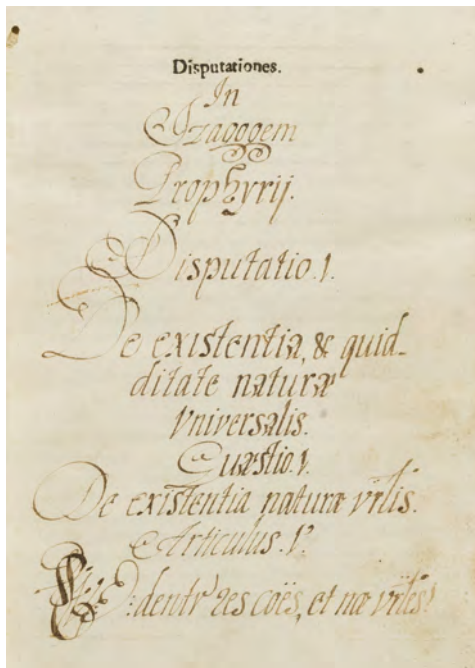 Disputationes.
In
Izagogem
Prophyrij.
Disputatio.1.
De existentia, & quid-
ditate naturæ
Vniversalis.
Quæstio.1.
De existentia naturæ vr̃lis.
Articulus.1º
dentr' res coẽs, et næ vr̃les?